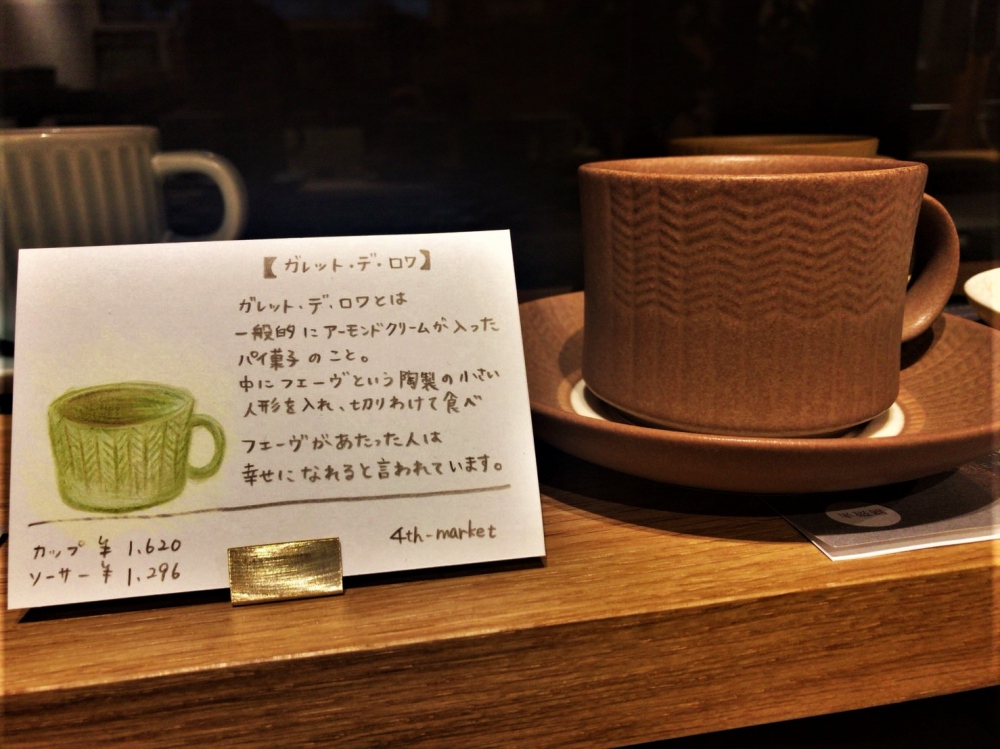 【ガレット・デ・ロワ】
ガレット・デ・ロワとは
一般的にアーモンドクリームが入った
パイ菓子のこと。
中にフェーヴという陶製の小さい
人形を入れ、切りわけて食べ
フェーヴがあたった人は
幸せになれると言われています。
カップ ¥ 1,620
ソーサー ¥ 1,296
4th-market